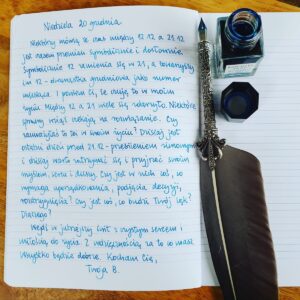 Niedziela, 20 grudnia
Niektórzy mówią, że czas między 12.12 a 21.12
jest czasem przemian. Symbolicznie i dosłownie.
Symbolicznie 12 zamienia się w 21, a towarzyszy
im 12 – dwunastka grudniowa jako numer
miesiąca. I powiem Ci, że czuję, to w moim
życiu. Między 12 a 21 wiele się zdarzyło. Niektóre
sprawy wciąż czekają na rozwiązanie. Czy
zauważyłaś to też w swoim życiu? Dzisiaj jest
ostatni dzień przed 21.12 – przesileniem zimowym
i dzisiaj warto zatrzymać się i przyjrzeć swoim
myślom, sercu i duszy. Czy jest w nich coś, co
wymaga uporządkowania, podjęcia decyzji,
rozstrzygnięcia? Czy jest coś, co budzi Twój lęk?
Dlaczego?
Wejdź w jutrzejszy świt z czystym sercem i
miłością do życia. Z wdzięcznością za to co masz.
Wszystko będzie dobrze. Kocham Cię,
Twoja B.